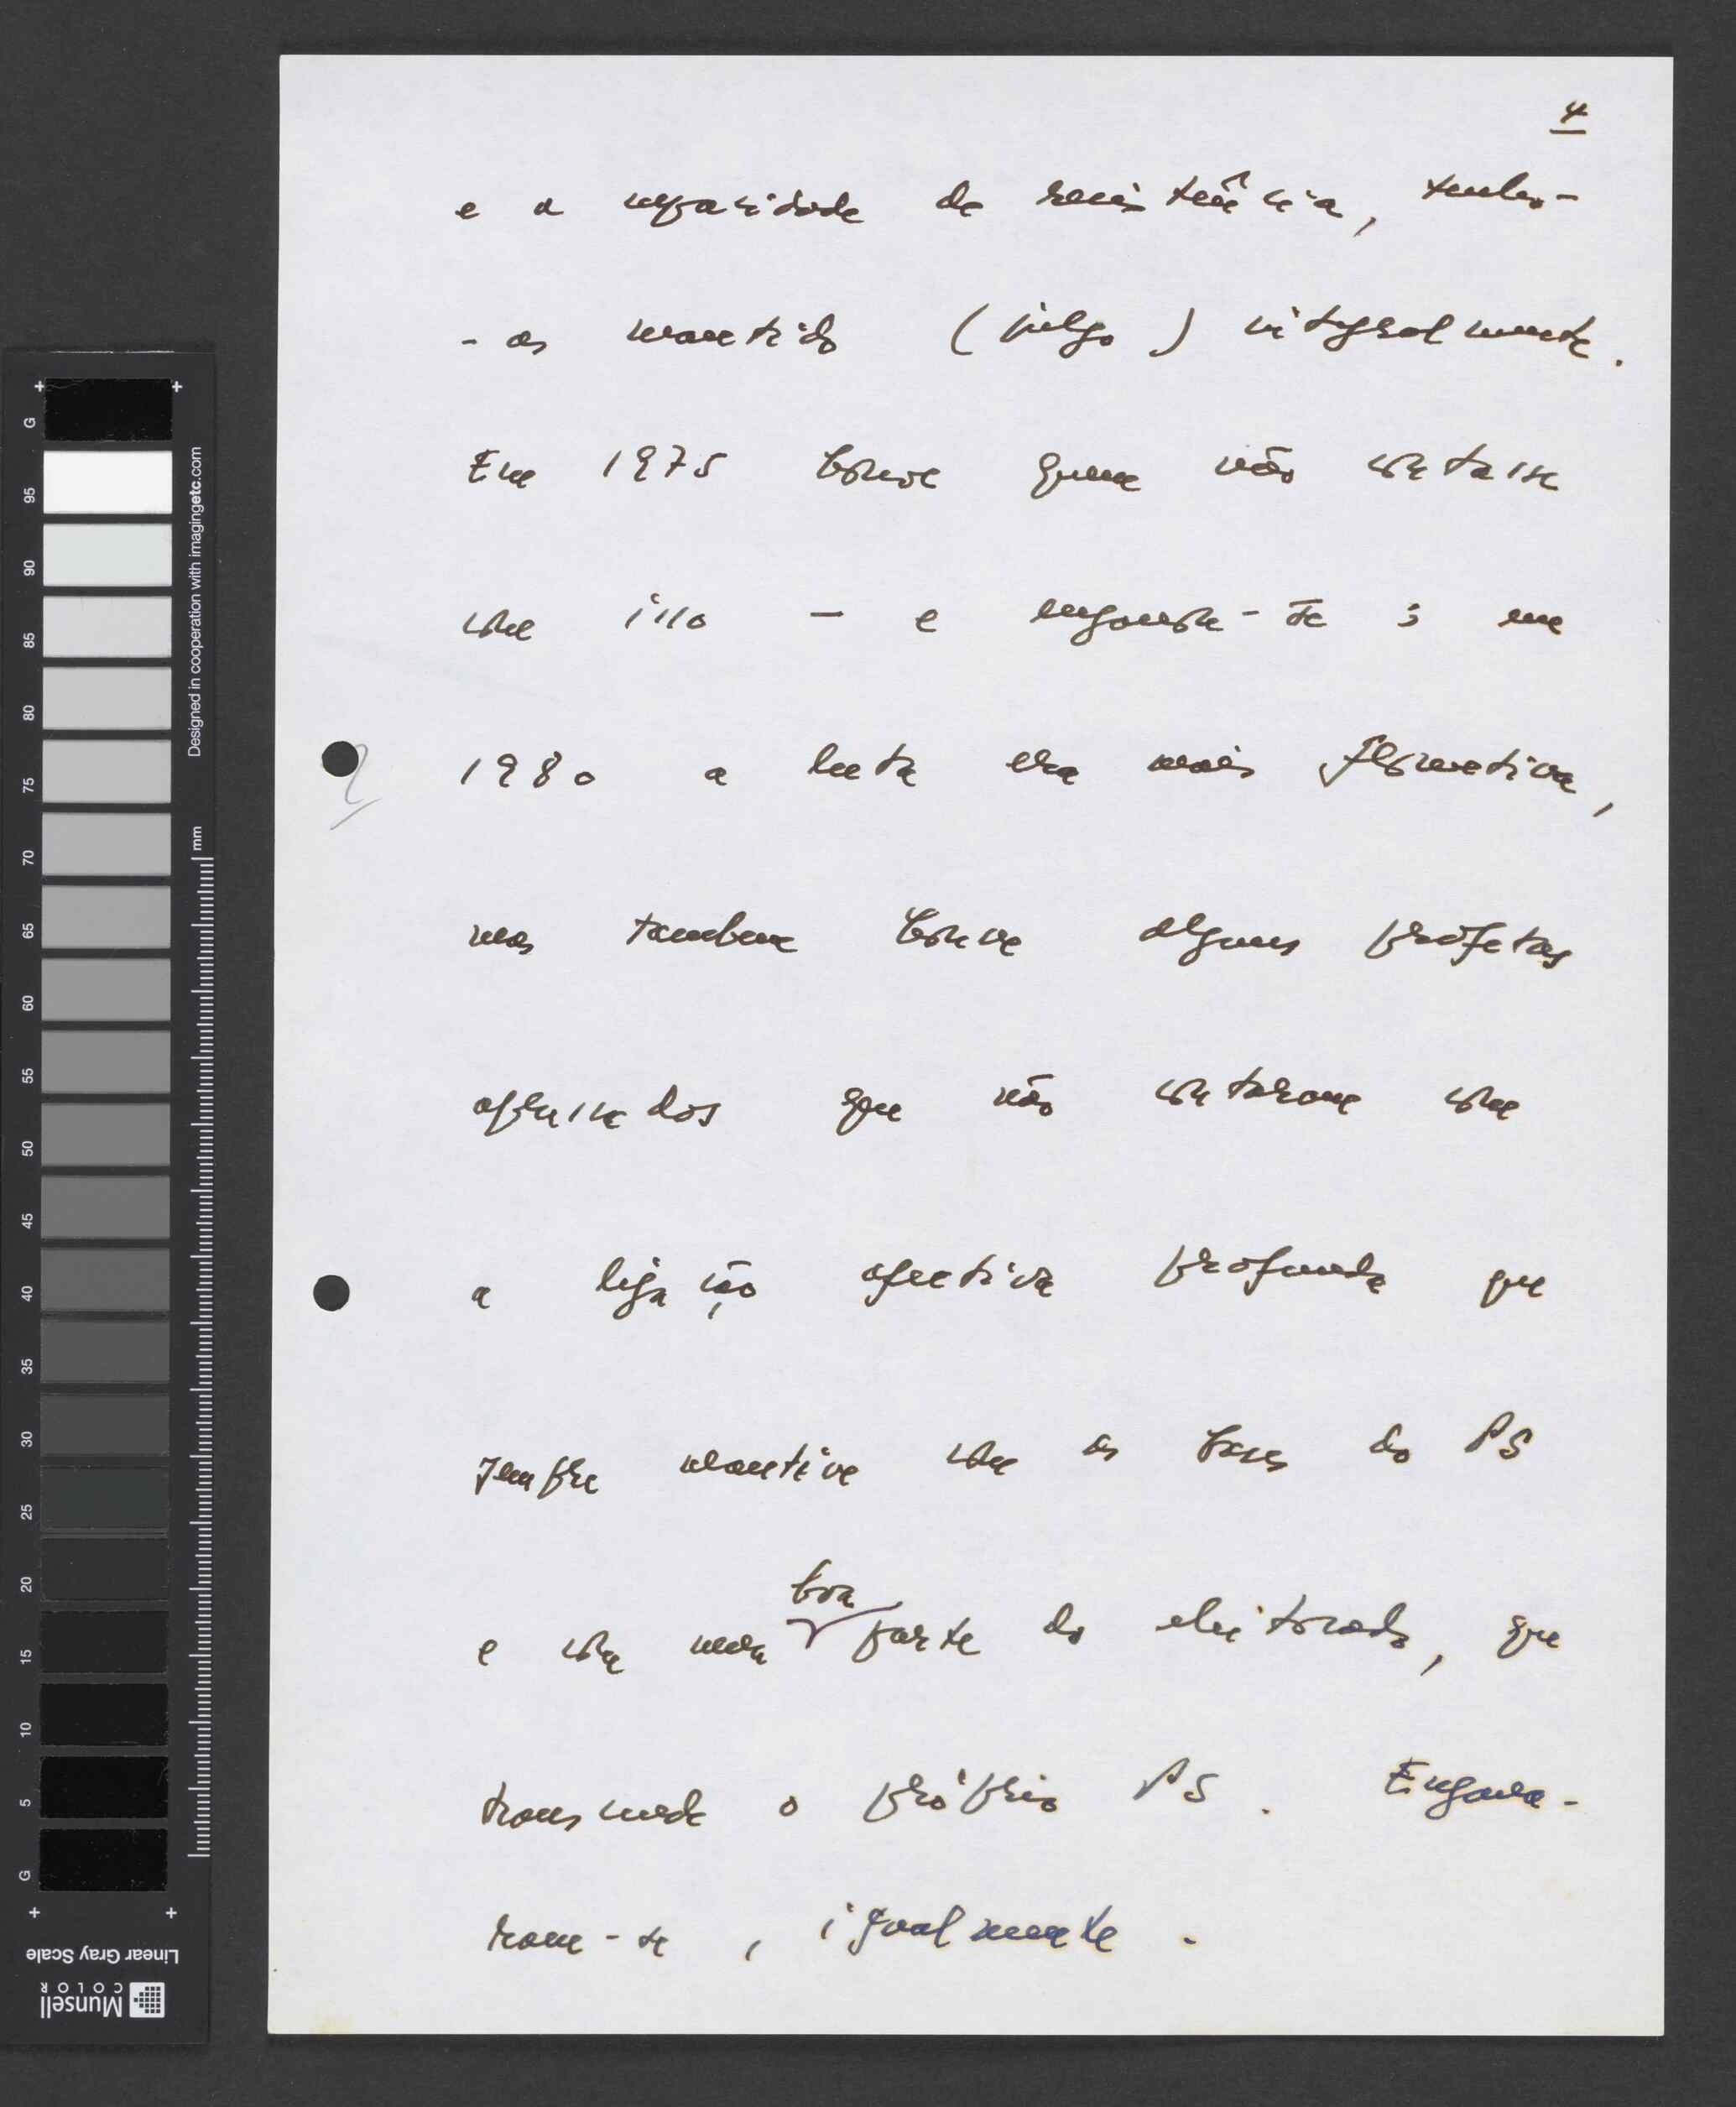 4
e a capacidade de resistência, tenho-
-as mantido (julgo) integralmente.
Em 1975 houve quem não contasse
com isso – e enganou-se; em
1980 a luta era mais
mas tambem houve alguns profetas
apressados que não contaram com
a ligação afectiva profunda que
sempre mantive com as bases do PS
boa
e com uma parte do eleitorado, que
transcende o próprio PS. Engana-
ram-se, igualmente.
G
95
90
85
80
75
70
65
60
55
50
45
40
35
30
25
20
15
10
5
G
mm
Designed in cooperation with imagingetc.com
Linear Gray Scale
Munsell
COLOR